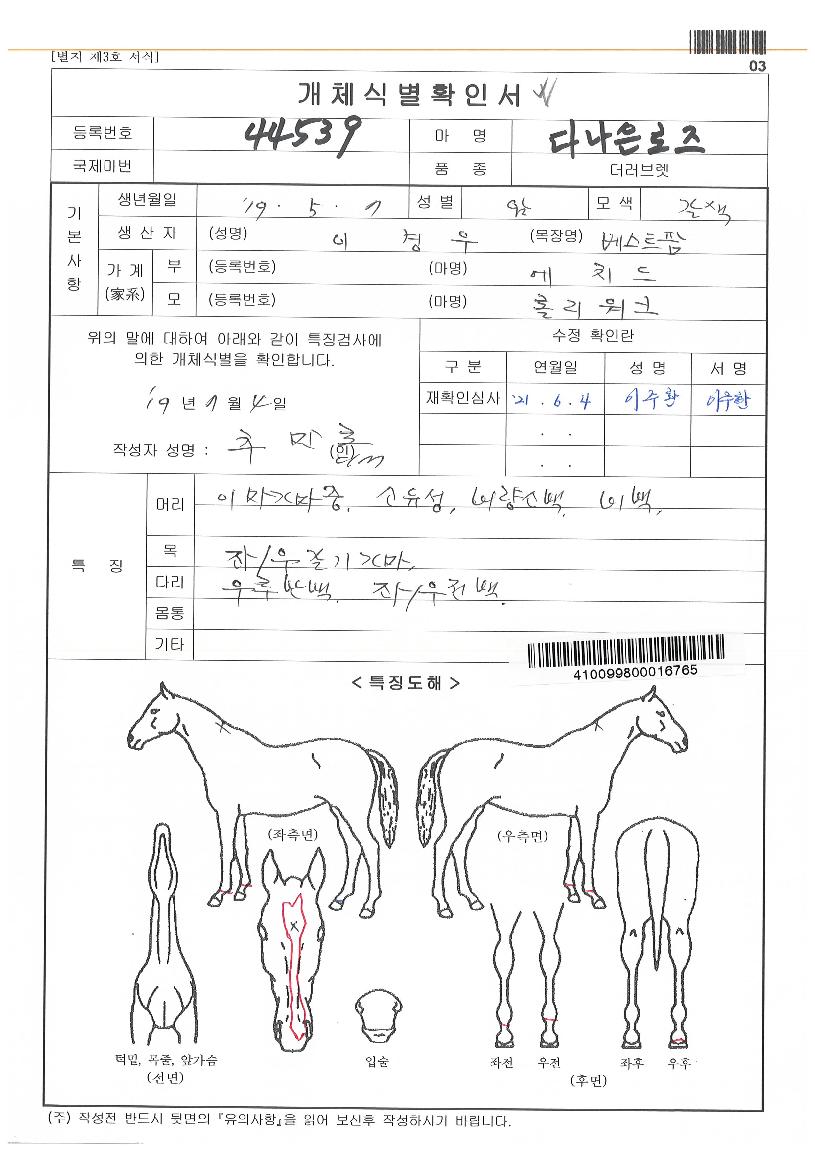 [별지 제3호 서식]
03
개체식별확인서
등록번호 44539 마 명 다나은로즈
국제마번 품 종 더러브렛
기본사항
생년월일 '19 . 5 . 7 성별 암 모색 갈색
생 산 지 (성명) 이 정 우 (목장명) 베스트팜
가 계 (家系) 부 (등록번호) (마명) 에 치 드
모 (등록번호) (마명) 홀리 워크
위의 말에 대하여 아래와 같이 특징검사에
의한 개체식별을 확인합니다.
'19 년 7 월 4 일
작성자 성명 : (인)
수정 확인란
구 분 연월일 성 명 서 명
재확인심사 '21 . 6 . 4 이주환 이주환
. .
. .
특 징
머리 이마 마중, 소유성, 비량소백, 비백,
목 좌/우갈기
다리 우후반백, 좌/우전백.
몸통
기타
410099800016765
< 특징도해 >
(좌측면)
(우측면)
턱밑, 목줄, 앞가슴
(선면)
입술
좌전 우전 좌후 우후
(후면)
(주) 작성전 반드시 뒷면의 『유의사항』을 읽어 보신후 작성하시기 바랍니다.